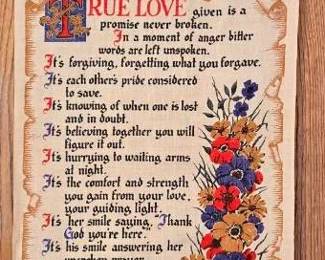 TRUE LOVE given is a
promise never broken.
In a moment of anger bitter
words are left unspoken.
It's forgiving, forgetting what you forgave.
It's each other's pride considered
to save.
It's knowing of when one is lost
and in doubt.
It's believing together you will
figure it out.
It's hurrying to waiting arms
at night.
It's the comfort and strength
you gain from your love,
your guiding light.
It's her smile saying, "Thank
God you're here."
It's his smile answering her
unspoken prayer.